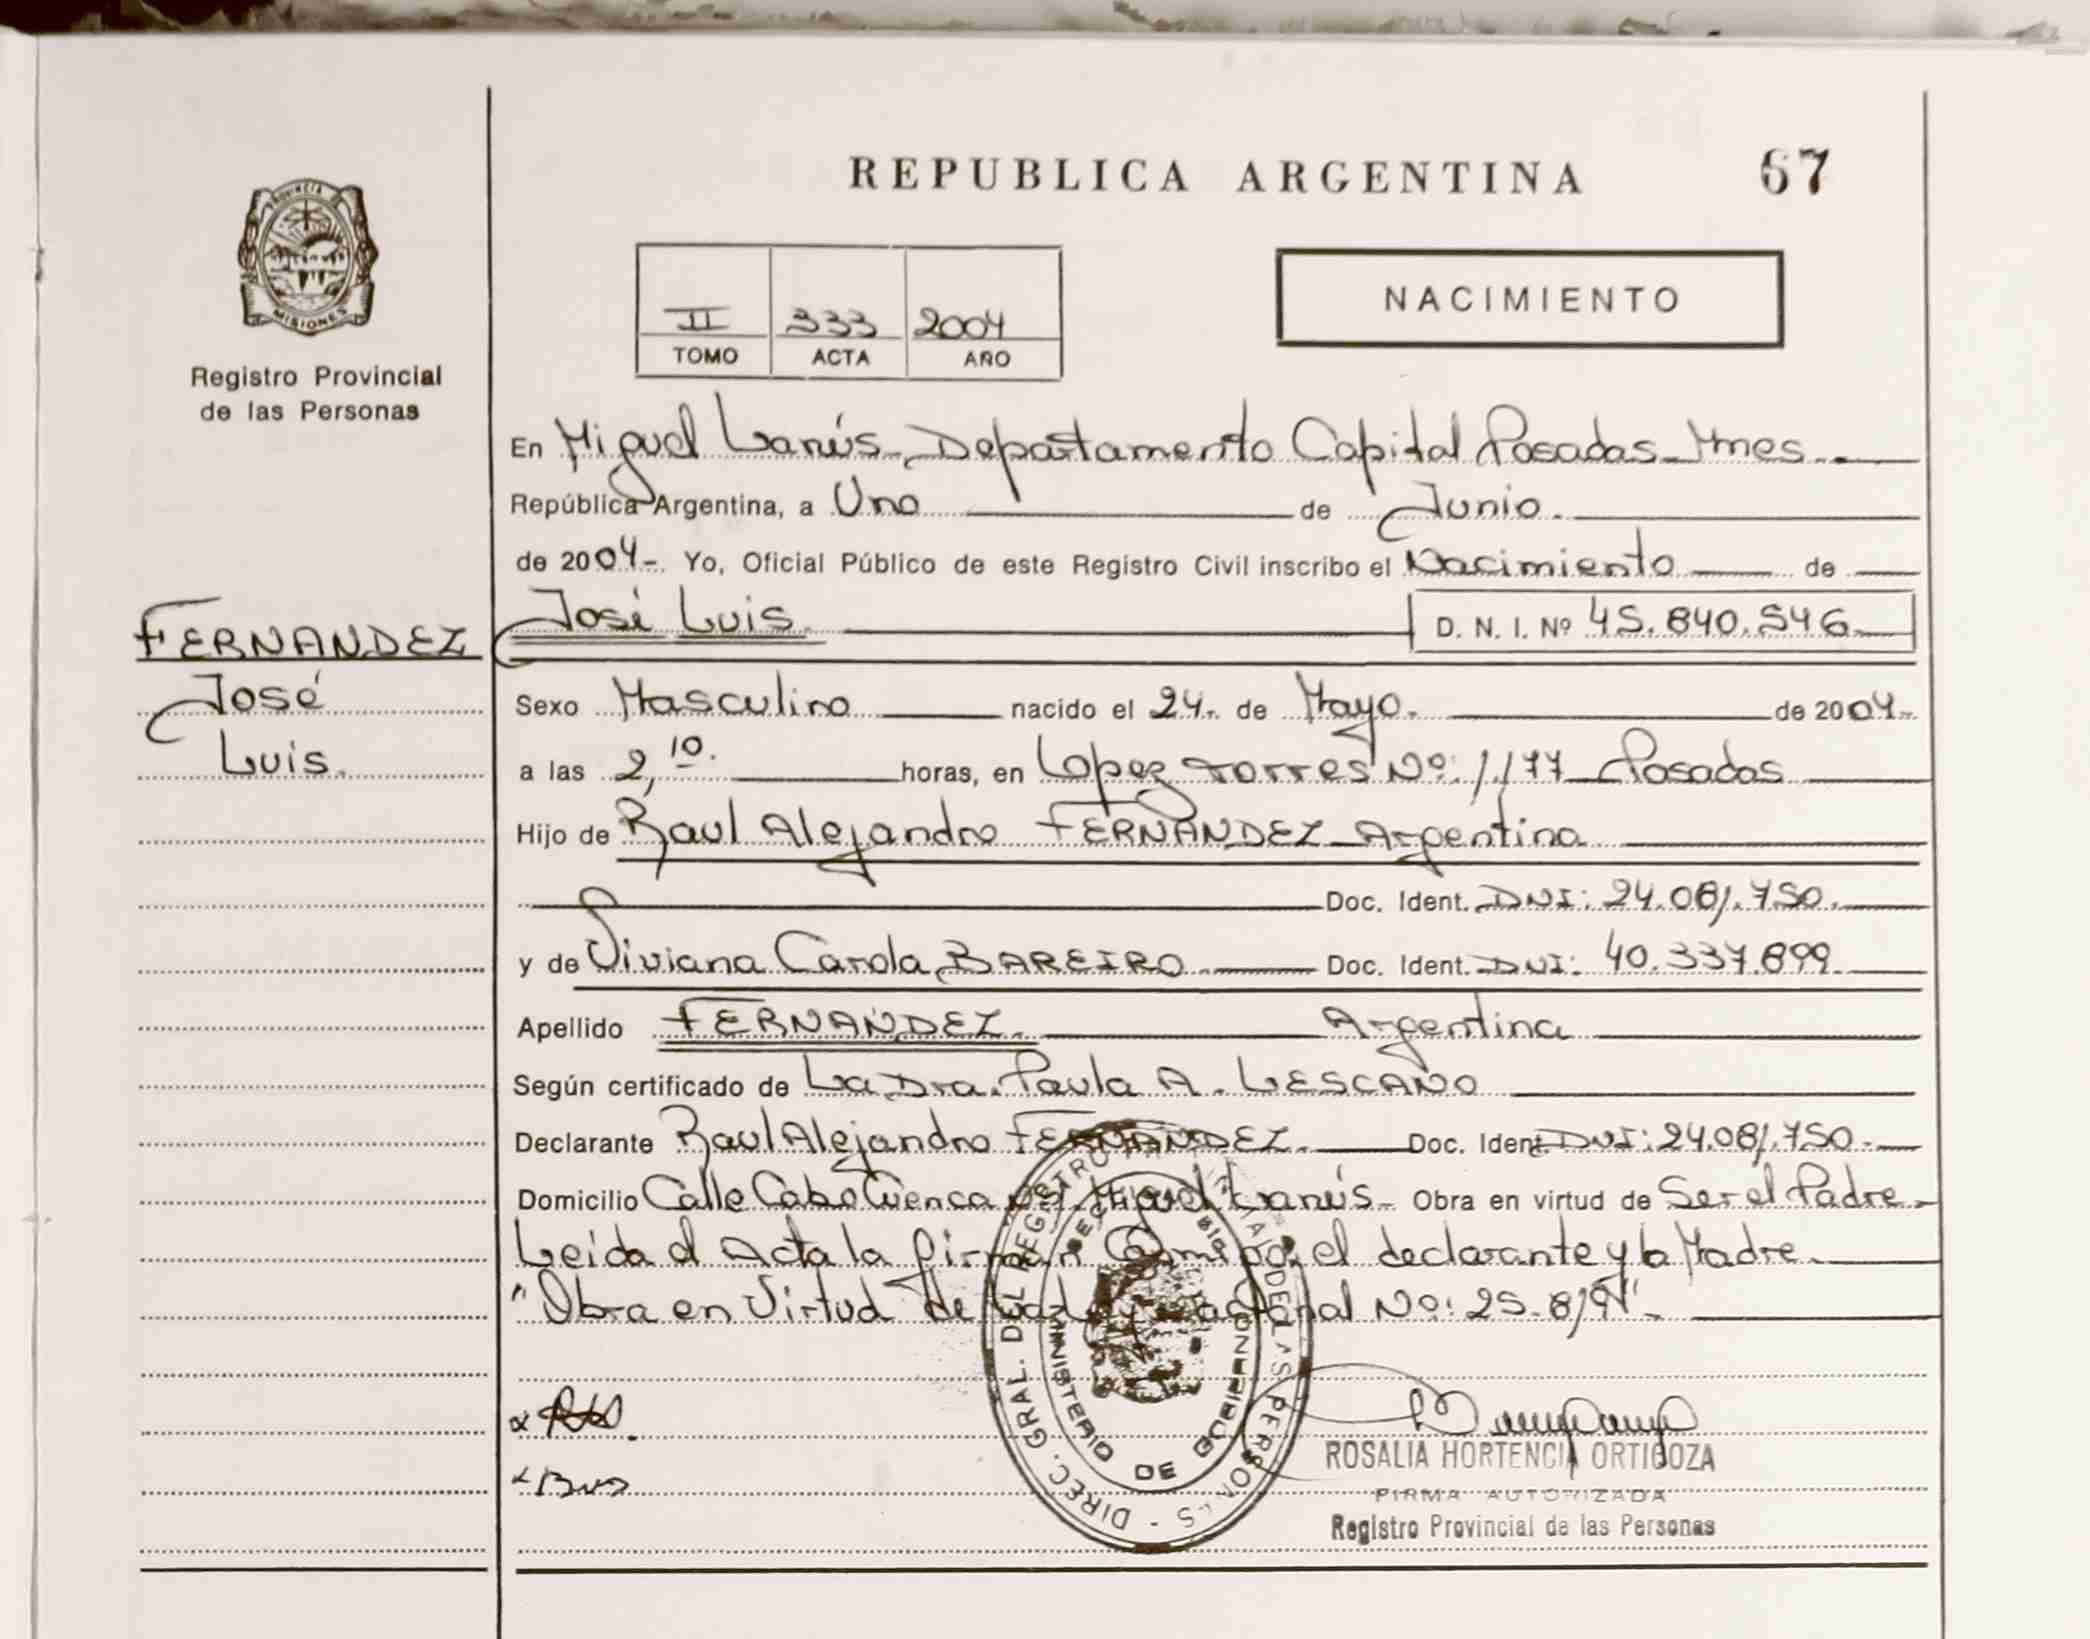 REPUBLICA ARGENTINA 67
PROVINCIA DE
MISIONES
Registro Provincial
de las Personas
II 333 2004
TOMO ACTA AÑO
NACIMIENTO
En Miguel Lanús - Departamento Capital Posadas - Mnes.
República Argentina, a Uno de Junio.
de 2004 - Yo, Oficial Público de este Registro Civil inscribo el Nacimiento de
FERNANDEZ
José
Luis.
José Luis. D. N. I. Nº 45.840.546
Sexo Masculino nacido el 24. de Mayo. de 2004-
a las 2,10. horas, en Lopez Torres Nº: 1177 Posadas
Hijo de Raul Alejandro FERNANDEZ - Argentina
Doc. Ident. DNI: 24.081.750.
y de Viviana Carola BAREIRO Doc. Ident. DNI: 40.337.899.
Apellido FERNANDEZ. Argentina
Según certificado de La Dra. Paula A. LESCANO
Declarante Raul Alejandro FERNANDEZ. Doc. Ident. DNI: 24.081.750.
Domicilio Calle Cabo Cuenca Miguel Lanús - Obra en virtud de Ser el Padre -
Leida el Acta la firman el declarante y la Madre.
"Obra en Virtud de Nacional Nº: 25.819"
DIREC. GRAL. DEL REGISTRO PROVINCIAL DE LAS PERSONAS -
MINISTERIO DE GOBIERNO
ROSALIA HORTENCIA ORTIGOZA
FIRMA AUTORIZADA
Registro Provincial de las Personas